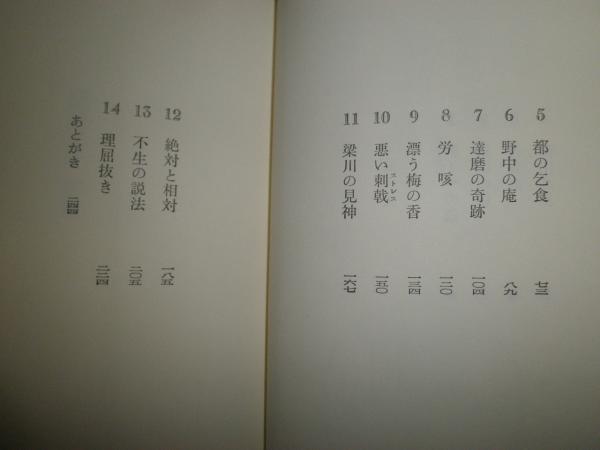 5 都の乞食 七三
6 野中の庵 八九
7 達磨の奇跡 一〇四
8 労咳 一二〇
9 漂う梅の香 一三四
10 悪い刺戟 ストレス 一五〇
11 梁川の見神 一六七
12 絶対と相対 一八五
13 不生の説法 二〇五
14 理屈抜き 二二四
あとがき 二四四